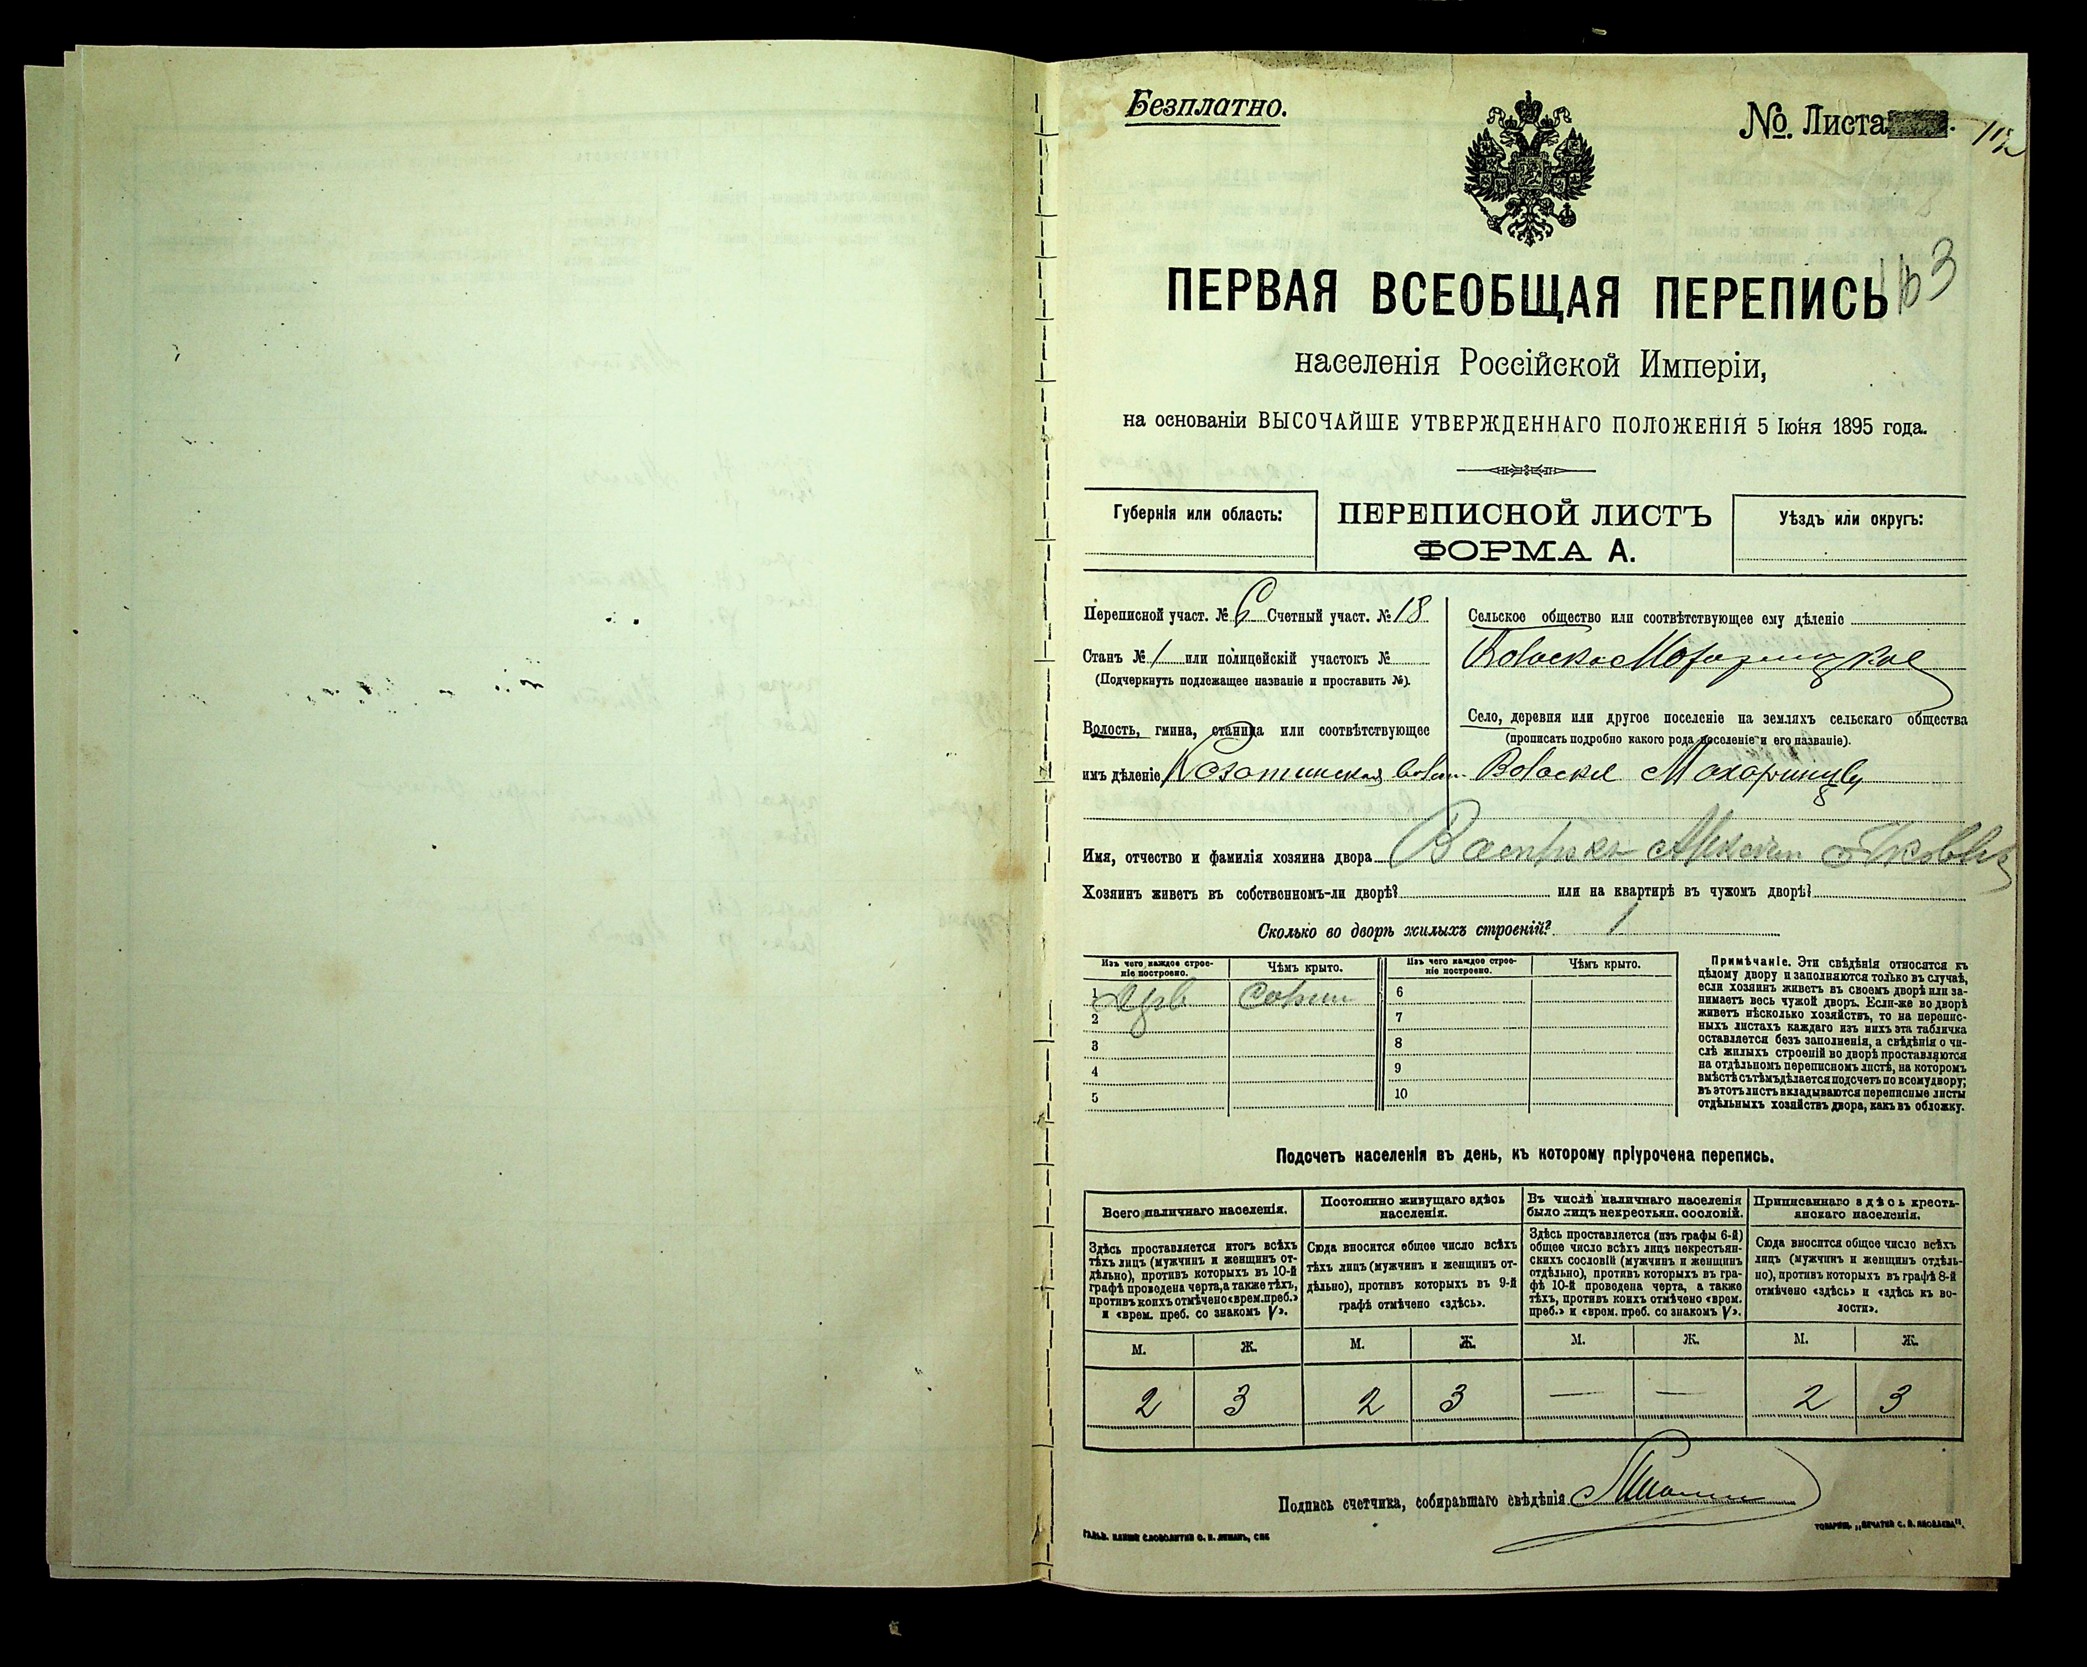 Безплатно.
№. Листа
163
ПЕРВАЯ ВСЕОБЩАЯ ПЕРЕПИСЬ
населенія Россійской Имперіи,
на основаніи ВЫСОЧАЙШЕ УТВЕРЖДЕННАГО ПОЛОЖЕНІЯ 5 Іюня 1895 года.
Губернія или область:
ПЕРЕПИСНОЙ ЛИСТЪ
ФОРМА А.
Уѣздъ или округъ:
Переписной участ. № 6 Счетный участ. № 18
Станъ № 1 или полицейскій участокъ №
(Подчеркнуть подлежащее названіе и проставить №).
Волость, гмина, станица или соотвѣтствующее
имъ дѣленіе Козатинская волост.
Сельское общество или соотвѣтствующее ему дѣленіе
Село, деревня или другое поселеніе на земляхъ сельскаго общества
(прописать подробно какого рода поселеніе и его названіе).
Махаринцы
Имя, отчество и фамилія хозяина двора
Хозяинъ живетъ въ собственномъ-ли дворѣ? или на квартирѣ въ чужомъ дворѣ?
Сколько во дворѣ жилыхъ строеній? 1
Изъ чего каждое строе-
ніе построено.
Чѣмъ крыто.
Изъ чего каждое строе-
ніе построено.
Чѣмъ крыто.
1
6
2
7
3
8
4
9
5
10
Примѣчаніе. Эти свѣдѣнія относятся къ
цѣлому двору и заполняются только въ случаѣ,
если хозяинъ живетъ въ своемъ дворѣ или за-
нимаетъ весь чужой дворъ. Если-же во дворѣ
живетъ нѣсколько хозяйствъ, то на перепис-
ныхъ листахъ каждаго изъ нихъ эта табличка
оставляется безъ заполненія, а свѣдѣнія о чи-
слѣ жилыхъ строеній во дворѣ проставляются
на отдѣльномъ переписномъ листѣ, на которомъ
вмѣстѣ съ тѣмъ дѣлается подсчетъ по всему двору;
въ этотъ листъ вкладываются переписные листы
отдѣльныхъ хозяйствъ двора, какъ въ обложку.
Подсчетъ населенія въ день, къ которому пріурочена перепись.
Всего наличнаго населенія.
Постоянно живущаго здѣсь
населенія.
Въ числѣ наличнаго населенія
было лицъ некрестьян. сословій.
Приписаннаго здѣсь кресть-
янскаго населенія.
Здѣсь проставляется итогъ всѣхъ
тѣхъ лицъ (мужчинъ и женщинъ от-
дѣльно), противъ которыхъ въ 10-й
графѣ проведена черта, а также тѣхъ,
противъ коихъ отмѣчено «врем. преб.»
и «врем. преб. со знакомъ V».
Сюда вносится общее число всѣхъ
тѣхъ лицъ (мужчинъ и женщинъ от-
дѣльно), противъ которыхъ въ 9-й
графѣ отмѣчено «здѣсь».
Здѣсь проставляется (изъ графы 6-й)
общее число всѣхъ лицъ некрестьян-
скихъ сословій (мужчинъ и женщинъ
отдѣльно), противъ которыхъ въ гра-
фѣ 10-й проведена черта, а также
тѣхъ, противъ коихъ отмѣчено «врем.
преб.» и «врем. преб. со знакомъ V».
Сюда вносится общее число всѣхъ
лицъ (мужчинъ и женщинъ отдѣль-
но), противъ которыхъ въ графѣ 8-й
отмѣчено «здѣсь» и «здѣсь къ во-
лости».
М. Ж. М. Ж. М. Ж. М. Ж.
2 3 2 3 — — 2 3
Подпись счетчика, собиравшаго свѣдѣнія
ТОВАРИЩ. „ПЕЧАТНЯ С. П. ЯКОВЛЕВА".